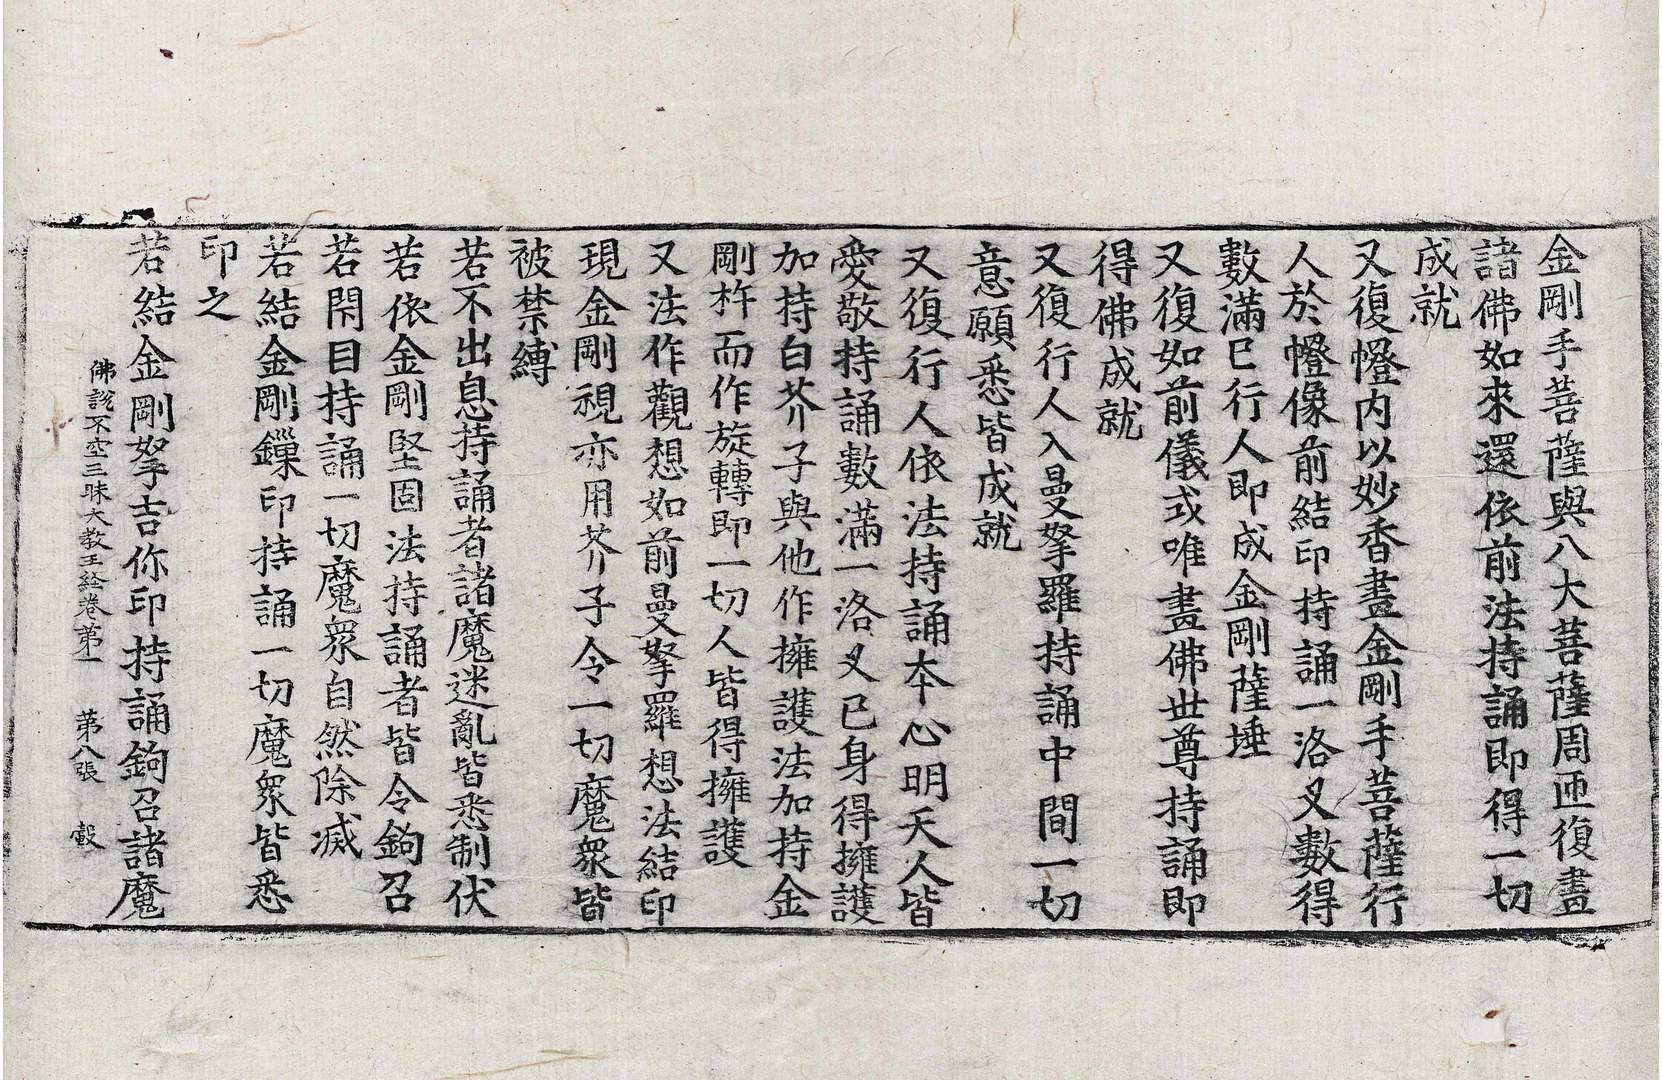 金剛手菩薩與八大菩薩周帀復畫
諸佛如來還依前法持誦即得一切
成就
又復㡧內以妙香畫金剛手菩薩行
人於㡧像前結印持誦一洛叉數得
數滿已行人即成金剛薩埵
又復如前儀式唯畫佛世尊持誦即
得佛成就
又復行人入曼拏羅持誦中間一切
意願悉皆成就
又復行人依法持誦本心明天人皆
愛敬持誦數滿一洛叉已身得擁護
加持白芥子與他作擁護法加持金
剛杵而作旋轉即一切人皆得擁護
又法作觀想如前曼拏羅想法結印
現金剛視亦用芥子令一切魔眾皆
被禁縛
若不出息持誦者諸魔迷亂皆悉制伏
若依金剛堅固法持誦者皆令鉤召
若閇目持誦一切魔眾自然除滅
若結金剛鏁印持誦一切魔眾皆悉
印之
若結金剛拏吉你印持誦鉤召諸魔
佛說不空三昧大教王経卷第一 第八張 㲉